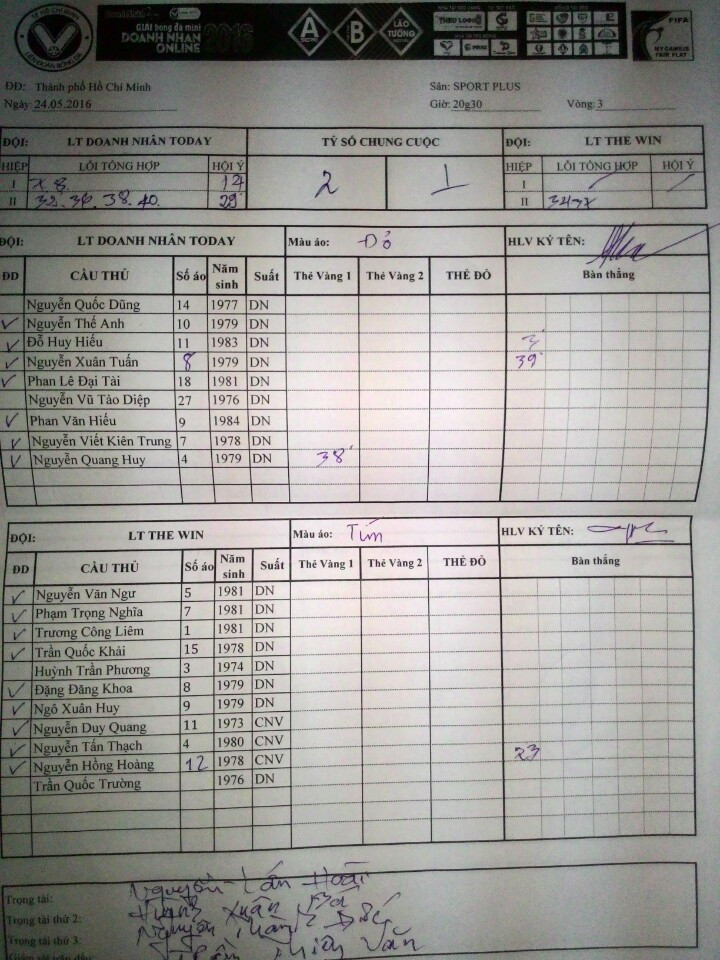 TP HỒ CHÍ MINH
LIÊN ĐOÀN BÓNG ĐÁ
GIẢI bóng đá mini
DOANH NHÂN
ONLINE 2016
A
B
LÃO TƯỚNG
FIFA
MY GAME IS
FAIR PLAY
ĐĐ: Thành phố Hồ Chí Minh Sân: SPORT PLUS
Ngày 24.05.2016 Giờ: 20g30 Vòng: 3
ĐỘI: LT DOANH NHÂN TODAY TỶ SỐ CHUNG CUỘC ĐỘI: LT THE WIN
HIỆP LỖI TỔNG HỢP HỘI Ý 2 1 HIỆP LỖI TỔNG HỢP HỘI Ý
I 8. 12 I
II 36. 38. 40. 29' II
ĐỘI: LT DOANH NHÂN TODAY Màu áo: Đỏ HLV KÝ TÊN:
ĐD CẦU THỦ Số áo Năm sinh Suất Thẻ Vàng 1 Thẻ Vàng 2 THẺ ĐỎ Bàn thắng
Nguyễn Quốc Dũng 14 1977 DN
✓ Nguyễn Thế Anh 10 1979 DN
✓ Đỗ Huy Hiếu 11 1983 DN 3'
✓ Nguyễn Xuân Tuấn 8 1979 DN 39'
✓ Phan Lê Đại Tài 18 1981 DN
Nguyễn Vũ Tảo Diệp 27 1976 DN
✓ Phan Văn Hiếu 9 1984 DN
✓ Nguyễn Viết Kiên Trung 7 1978 DN
✓ Nguyễn Quang Huy 4 1979 DN 38'
ĐỘI: LT THE WIN Màu áo: Tím HLV KÝ TÊN:
ĐD CẦU THỦ Số áo Năm sinh Suất Thẻ Vàng 1 Thẻ Vàng 2 THẺ ĐỎ Bàn thắng
✓ Nguyễn Văn Ngư 5 1981 DN
✓ Phạm Trọng Nghĩa 7 1981 DN
✓ Trương Công Liêm 1 1981 DN
✓ Trần Quốc Khải 15 1978 DN
Huỳnh Trần Phương 3 1974 DN
✓ Đặng Đăng Khoa 8 1979 DN
✓ Ngô Xuân Huy 9 1979 DN
✓ Nguyễn Duy Quang 11 1973 CNV
✓ Nguyễn Tấn Thạch 4 1980 CNV 23
✓ Nguyễn Hồng Hoàng 12 1978 CNV
Trần Quốc Trường 1976 DN
Trọng tài: Nguyễn Tấn Hoài
Trọng tài thứ 2: Xuân
Trọng tài thứ 3: Nguyễn
Văn